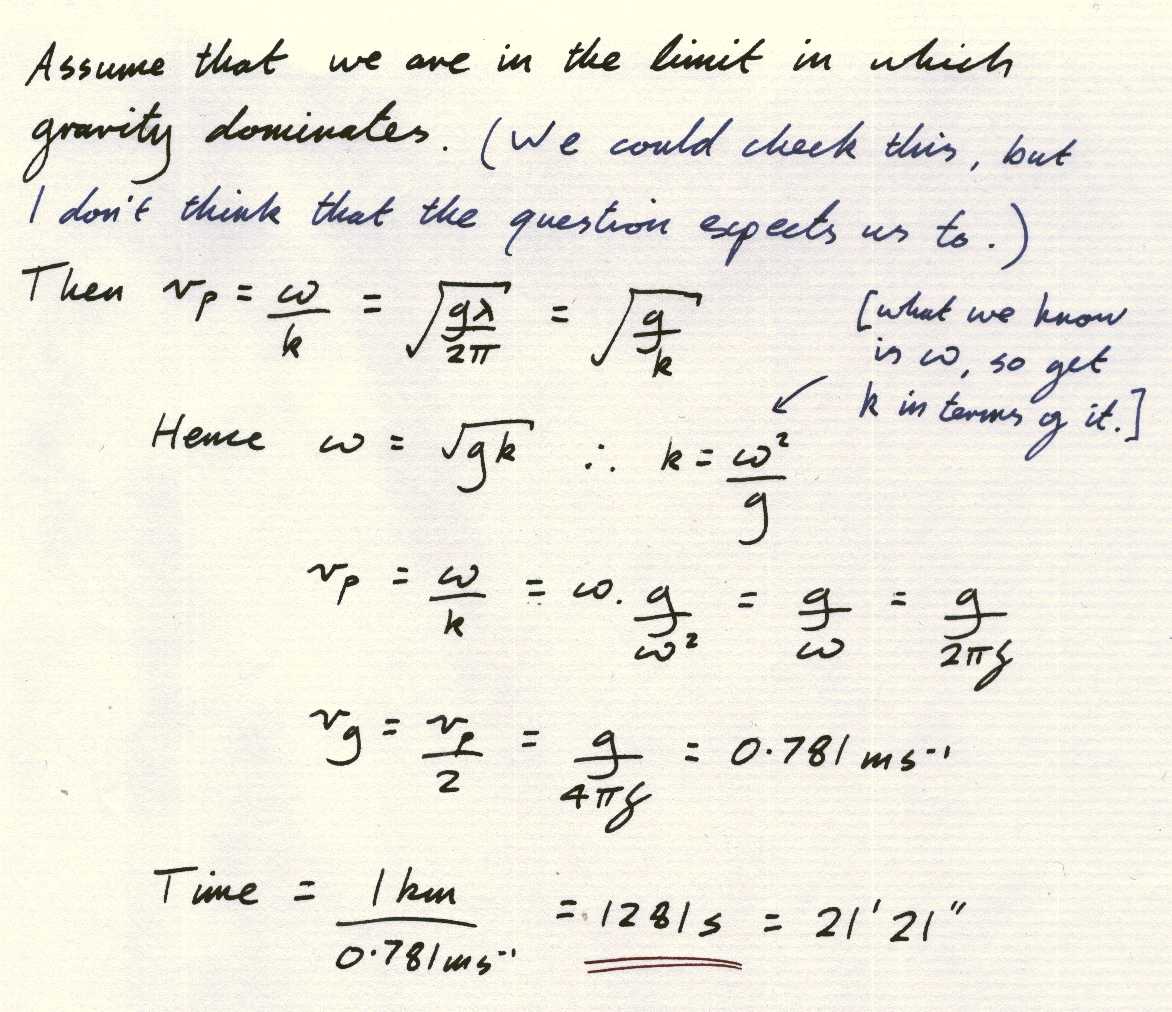 Assume that we are in the limit in which
gravity dominates. (We could check this, but
I don't think that the question expects us to.)
Then v_p = ω/k = √(gλ/2π) = √(g/k)
[what we know
is ω, so get
k in terms of it.]
Hence ω = √gk ∴ k = ω²/g
v_p = ω/k = ω. g/ω² = g/ω = g/2πf
v_g = v_p/2 = g/4πf = 0.781 ms⁻¹
Time = 1 km/0.781 ms⁻¹ = 1281 s = 21' 21"